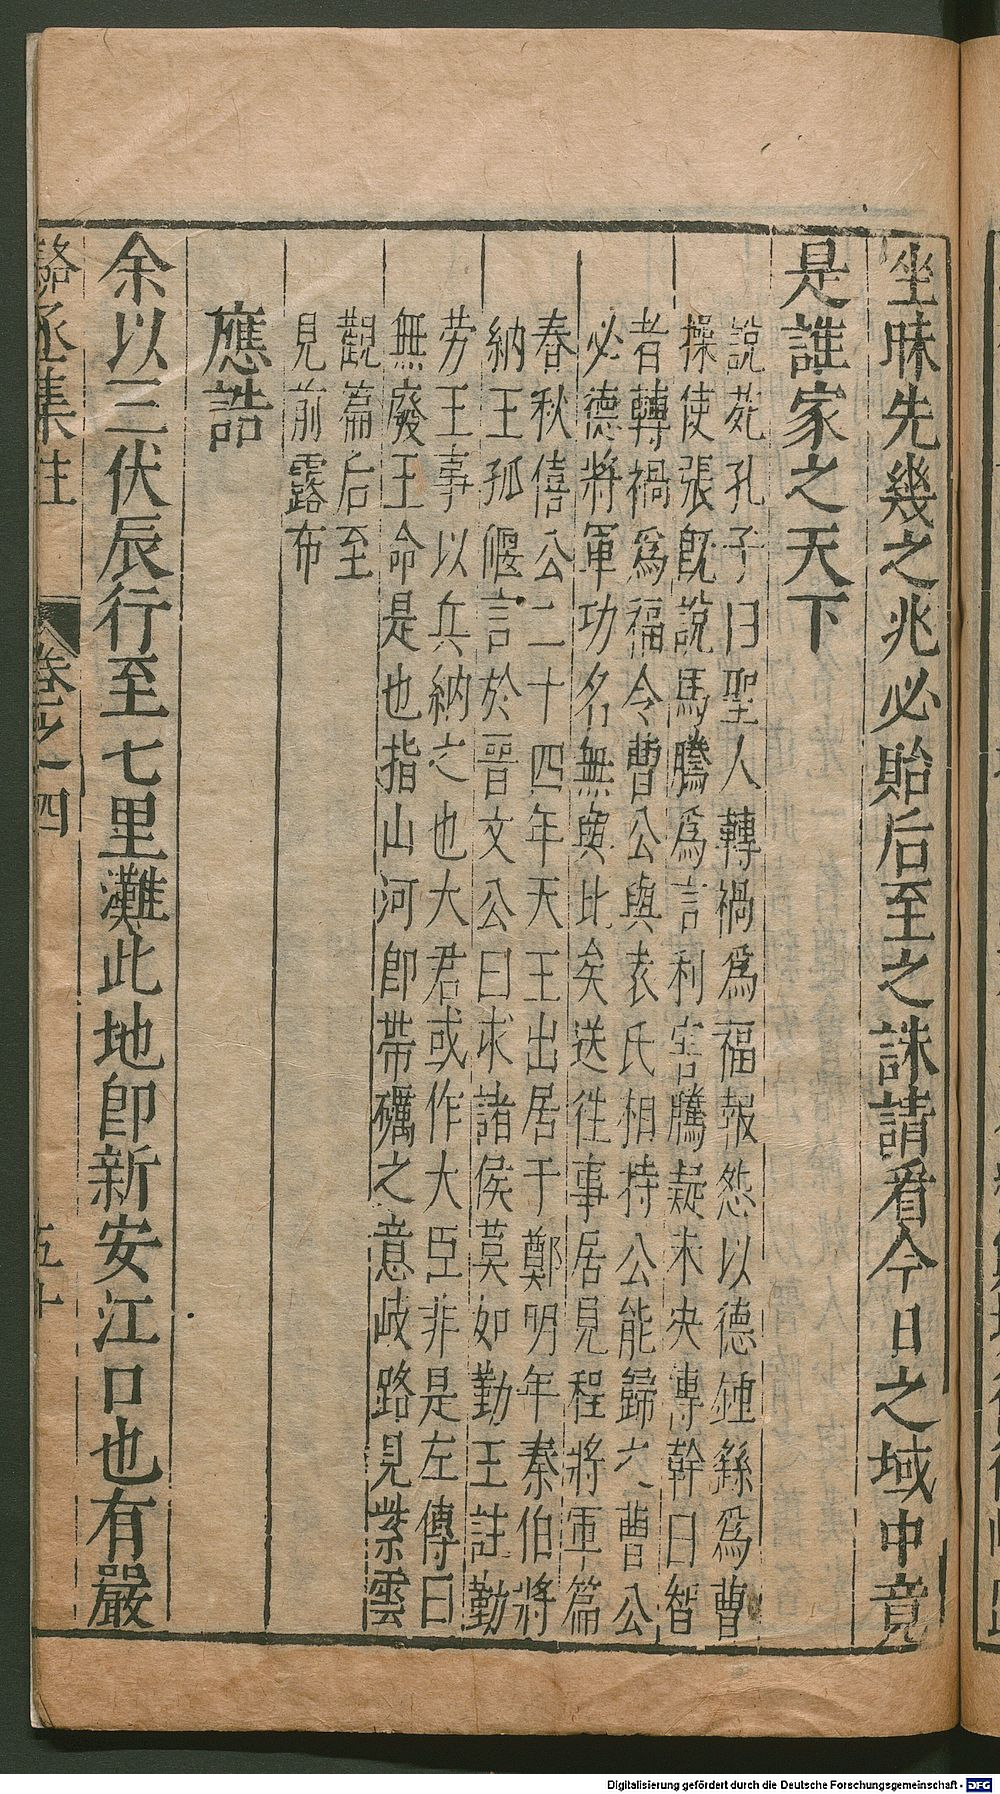 坐昧先幾之兆必貽后至之誅請看今日之域中竟
是誰家之天下
說苑孔子曰聖人轉禍爲福報怨以德鍾繇爲曹
操使張既說馬騰爲言利害騰疑未央傳幹曰智
者轉禍爲福今曹公與袁氏相持公能歸六曹公
必德將軍功名無與比矣送徃事居見程將軍篇
春秋僖公二十四年天王出居于鄭明年秦伯將
納王孤偃言於晉文公曰求諸侯莫如勤王註勤
劳王事以兵納之也大君或作大臣非是左傳曰
無廢王命是也指山河卽帶礪之意岐路見紫雲
觀篇后至
見前露布
應誥
余以三伏辰行至七里灘此地卽新安江口也有嚴
駱丞集註 卷之四 五十
Digitalisierung gefördert durch die Deutsche Forschungsgemeinschaft - DFG